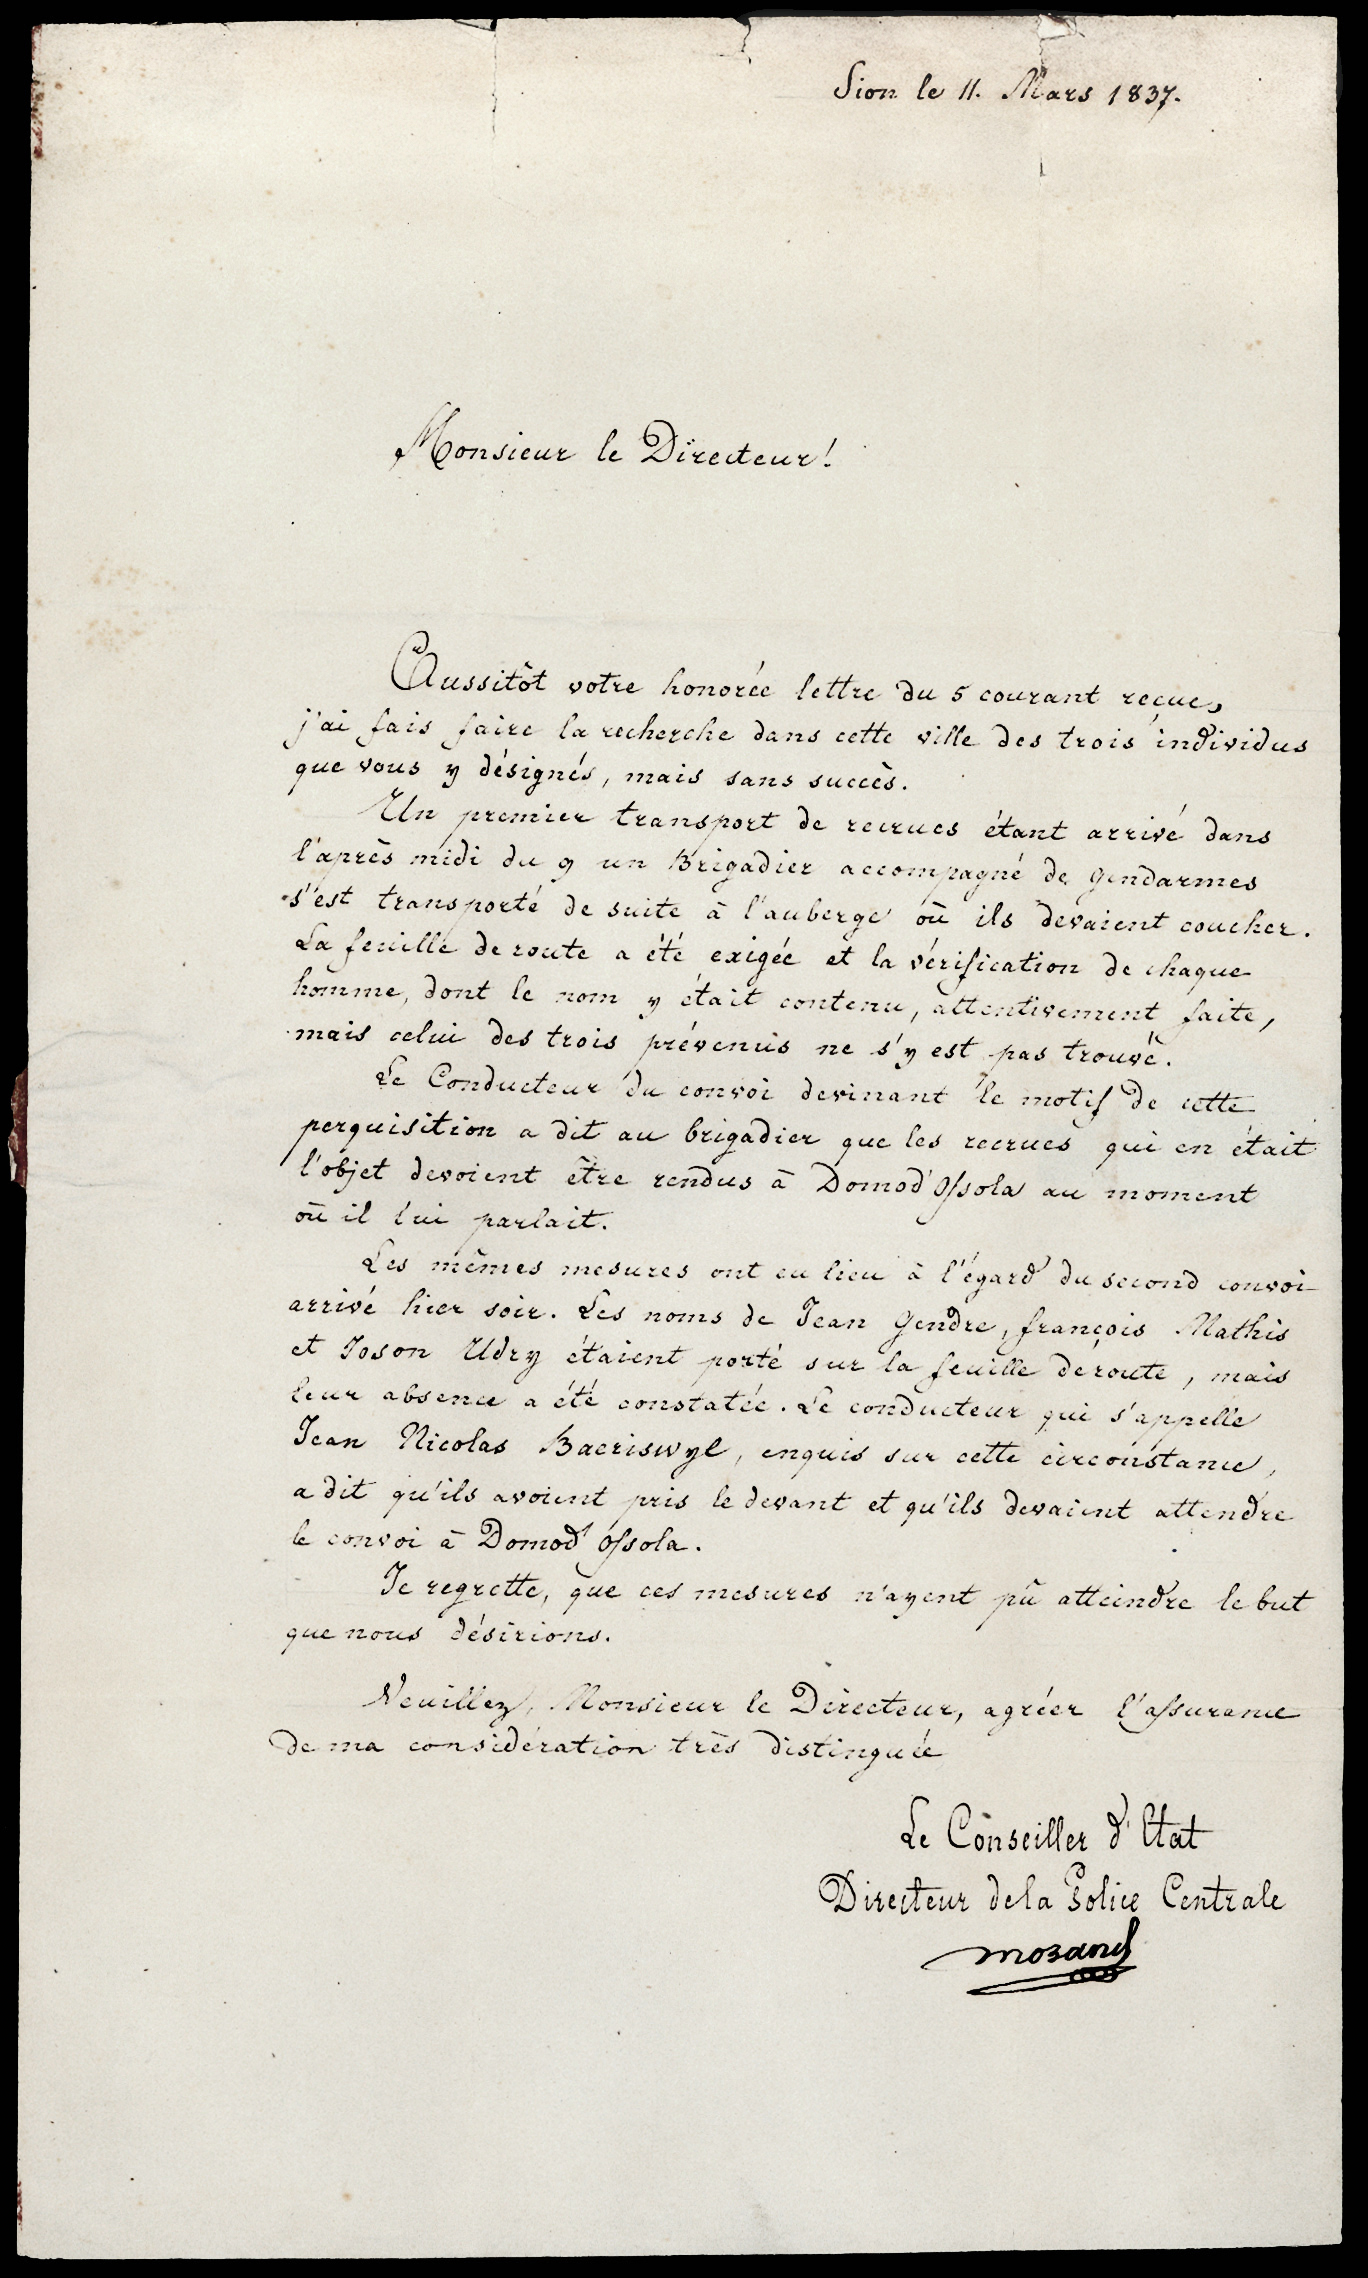 Sion le 11. Mars 1837.
Monsieur le Directeur!
Aussitôt votre honorée lettre du 5 courant reçue,
j'ai fais faire la recherche dans cette ville des trois individus
que vous y désignés, mais sans succès.
Un premier transport de recrues étant arrivé dans
l'après midi du 9 un Brigadier accompagné de gendarmes
s'est transporté de suite à l'auberge où ils devaient coucher.
La feuille de route a été exigée et la vérification de chaque
homme, dont le nom y était contenu, attentivement faite,
mais celui des trois prévenus ne s'y est pas trouvé.
Le Conducteur du convoi devinant le motif de cette
perquisition a dit au brigadier que les recrues qui en était
l'objet devoient être rendus à Domod'Ossola au moment
où il lui parlait.
Les mêmes mesures ont eu lieu à l'égard du second convoi
arrivé hier soir. Les noms de Jean Gendre, françois Mathis
et Joson Udry étaient porté sur la feuille de route, mais
leur absence a été constatée. Le conducteur qui s'appelle
Jean Nicolas Baeriswyl, enquis sur cette circonstance,
a dit qu'ils avoient pris le devant et qu'ils devaient attendre
le convoi à Domod'Ossola.
Je regrette, que ces mesures n'ayent pû atteindre le but
que nous désirions.
Veuillez, Monsieur le Directeur, agréer l'assurance
de ma considération très distinguée
Le Conseiller d'Etat
Directeur de la Police Centrale